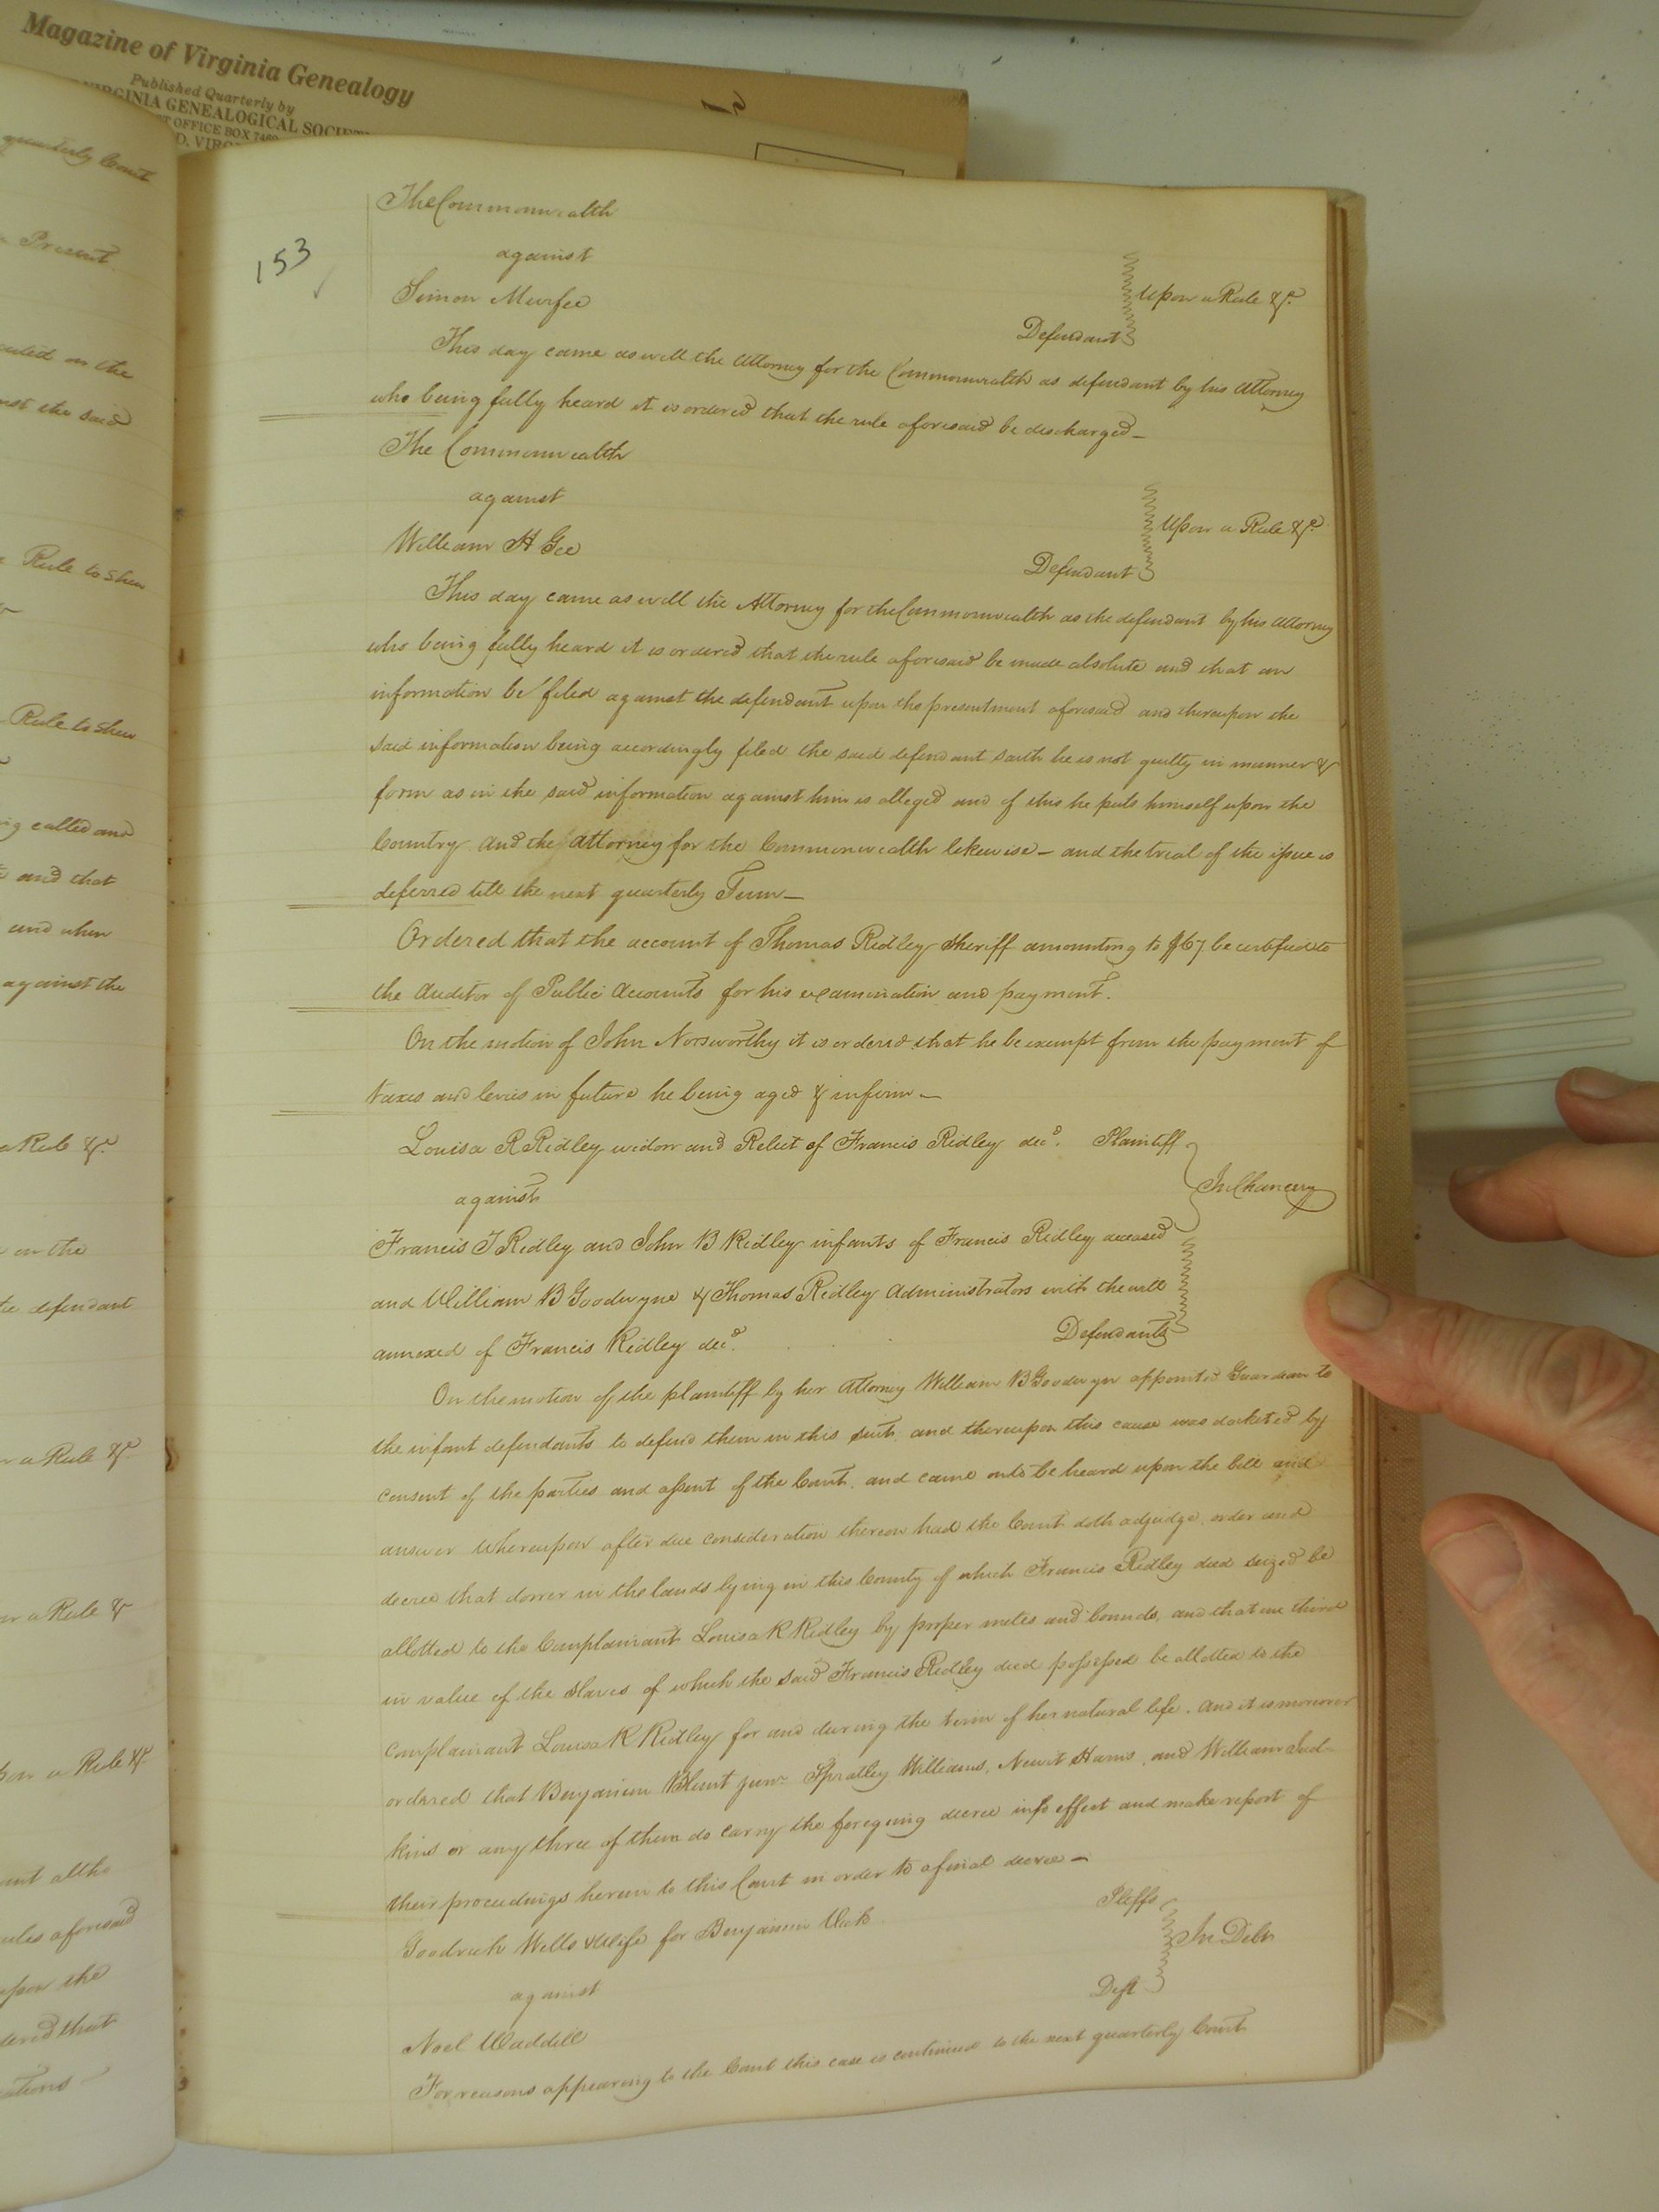 Magazine of Virginia Genealogy
Published Quarterly by
VIRGINIA GENEALOGICAL SOCIETY
OFFICE BOX
quarterly Court
Present
on the
the said
Rule to Shew
Rule to Shew
called and
and that
and when
against the
a Rule &c.
on the
defendant
a Rule &c
a Rule &
a Rule &c
aforesaid
upon the
that
153
The Commonwealth
against
Simon Murfee
Defendant
Upon a Rule &c.
This day came as well the Attorney for the Commonwealth as defendant by his Attorney
who being fully heard it is ordered that the rule aforesaid be discharged—
The Commonwealth
against
William H Gee
Defendant
Upon a Rule &c
This day came as well the Attorney for the Commonwealth as the defendant by his attorney
who being fully heard it is ordered that the rule aforesaid be made absolute and that an
information be filed against the defendant upon the presentment aforesaid and thereupon the
said information being accordingly filed the said defendant saith he is not guilty in manner &
form as in the said information against him is alleged and of this he puts himself upon the
Country And the attorney for the Commonwealth likewise— and the trial of the issue is
deferred till the next quarterly Term—
Ordered that the account of Thomas Ridley Sheriff amounting to $67 be certified to
the Auditor of Public Accounts for his examination and payment.
On the motion of John Norsworthy it is ordered that he be exempt from the payment of
taxes and levies in future he being aged & infirm—
Louisa R Ridley widow and Relict of Francis Ridley decd. Plaintiff
against
In Chancery
Francis T Ridley and John B Ridley infants of Francis Ridley deceased
and William B Goodwyne & Thomas Ridley Administrators with the will
annexed of Francis Ridley decd.
Defendants
On the motion of the plaintiff by her Attorney William B Goodwyn appointed Guardian to
the infant defendants to defend them in this suit, and thereupon this cause was docketed by
consent of the parties and assent of the Court, and came onto be heard upon the bill and
answer Whereupon after due consideration thereon had the Court doth adjudge, order and
decree that dower in the lands lying in this County of which Francis Ridley died seized be
allotted to the Complainant Louisa R Ridley by proper metes and bounds, and that one third
in value of the slaves of which the said Francis Ridley died possessed be allotted to the
complainant Louisa R Ridley for and during the term of her natural life. And it is moreover
ordered that Benjamin Blunt junr Spratley Williams, Newit Harris, and William Jud-
kins or any three of them do carry the foregoing decree into effect and make report of
their proceedings herein to this Court in order to a final decree—
Goodrich Wells & Wife for Benjamin
Pltffs
against
In Debt
Deft
Noel Waddill
For reasons appearing to the Court this case is continued to the next quarterly Court